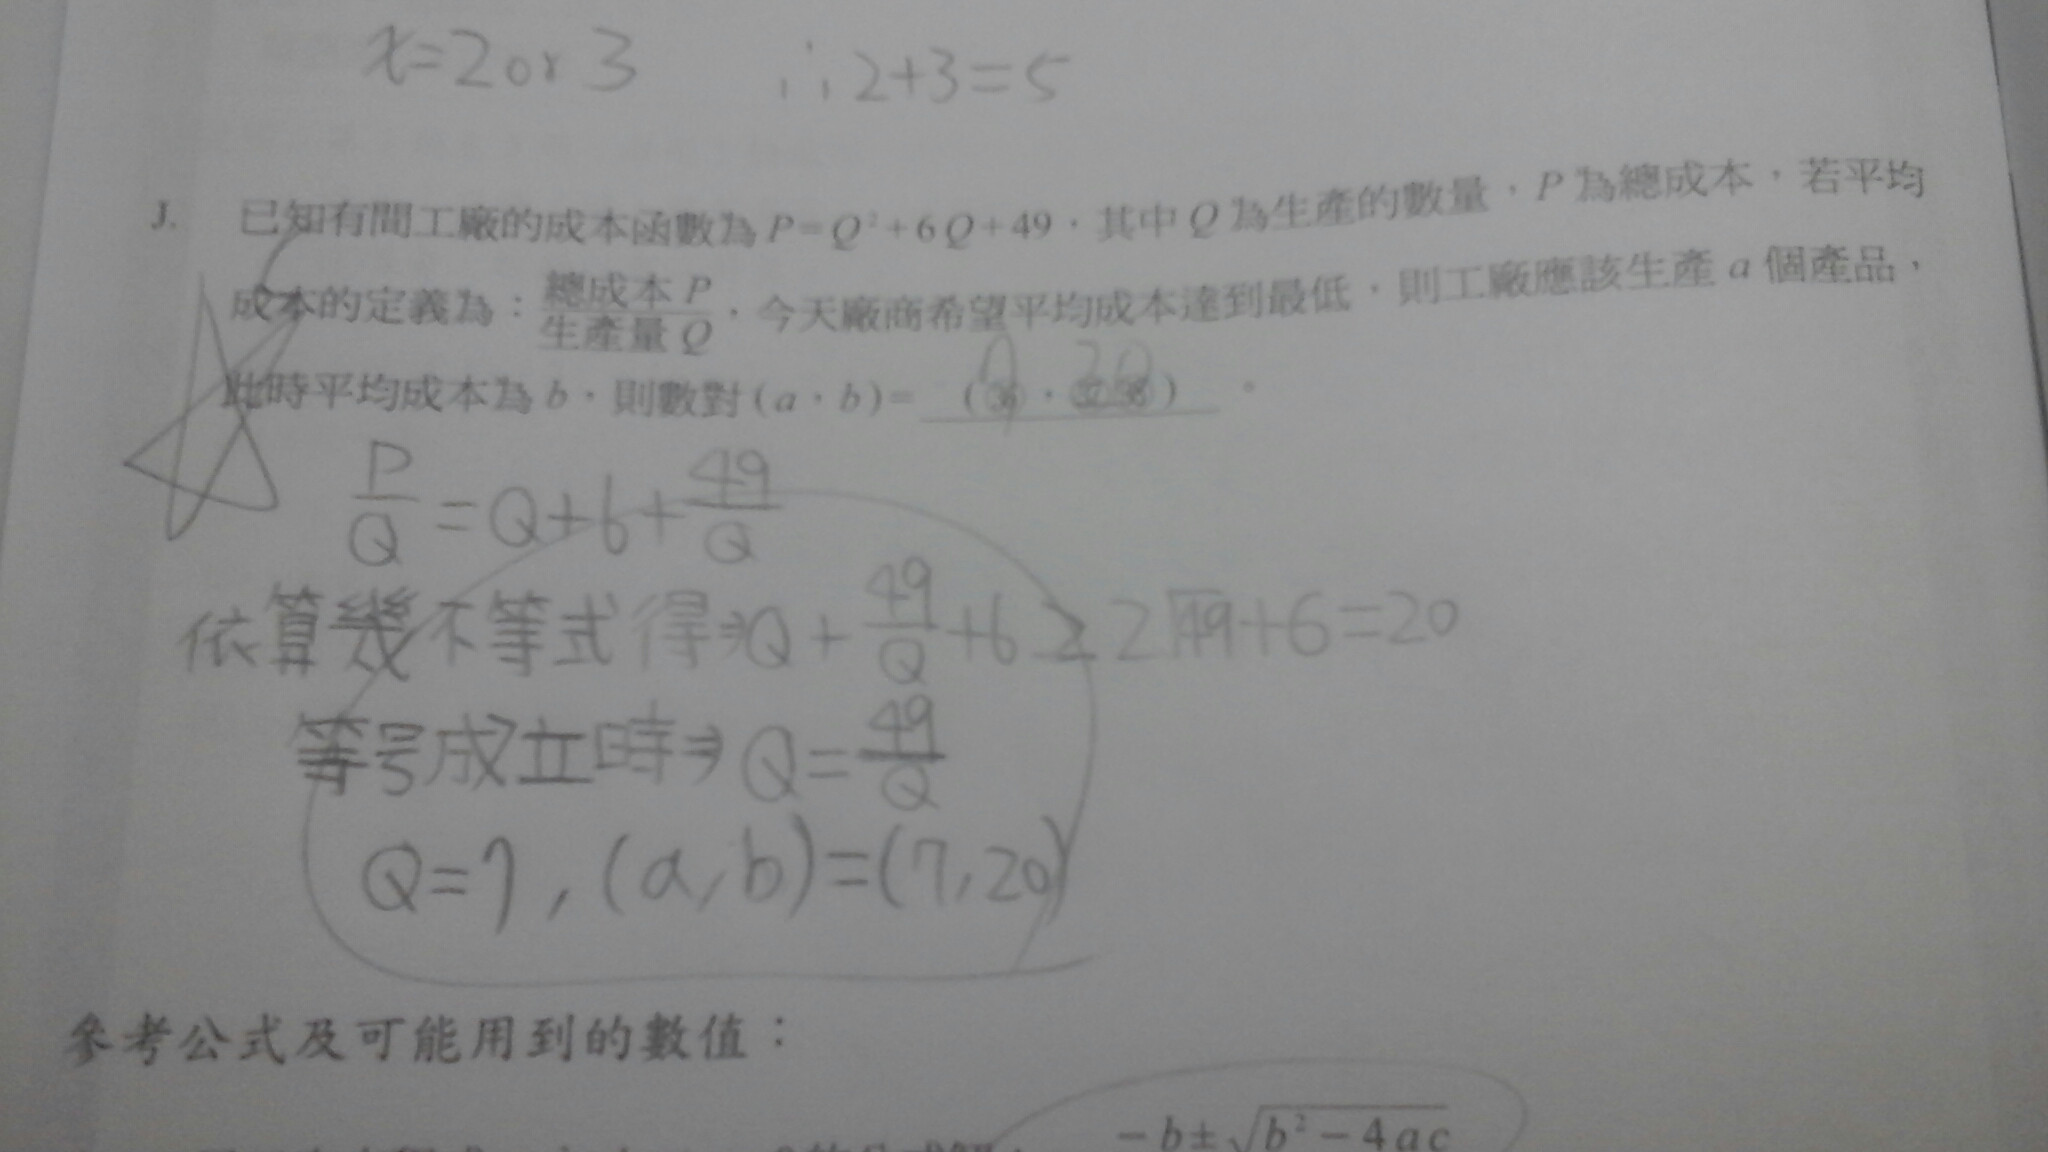 x=2 or 3 ∴2+3=5
J. 已知有間工廠的成本函數為 P=Q²+6Q+49，其中 Q 為生產的數量，P 為總成本，若平均
成本的定義為：總成本 P/生產量 Q，今天廠商希望平均成本達到最低，則工廠應該生產 a 個產品，
此時平均成本為 b，則數對 (a，b)= ( ， 20 )。
P/Q = Q+6+49/Q
依算幾不等式得⇒Q+49/Q+6≥2√49+6=20
等号成立時⇒Q=49/Q
Q=7, (a,b)=(7,20)
參考公式及可能用到的數值：
-b±√b²-4ac